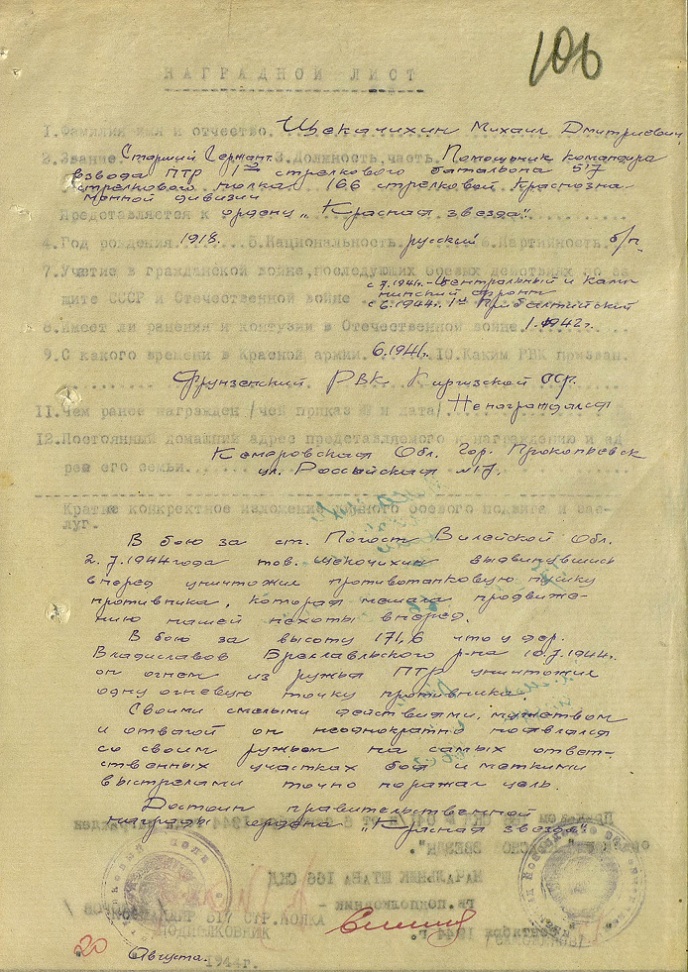 106
НАГРАДНОЙ ЛИСТ
1.Фамилия имя и отчество. Щекачихин Михаил Дмитриевич,
2.Звание. Старший Сержант. 3.Должность,часть. Помощник командира
взвода ПТР 1го стрелкового батальона 517
стрелкового полка 166 стрелковой Краснозна-
менной дивизии
Представляется к ордену „Красная звезда".
4.Год рождения. 1918. 5.Национальность русский 6.Партийность. б/п
7.Участие в гражданской войне,последующих боевых действиях по за-
с 7.1941г.-Центральный и Кали-
нинский фронт
щите СССР и Отечественной войне с 6.1944г. 1й Прибалтийский
8.Имеет ли ранения и контузии в Отечественной войне. 1.1942г.
9.С какого времени в Красной армии. 6.1941г. 10.Каким РВК призван.
Фрунзенский РВК, Киргизской ССР.
11.Чем ранее награжден /чей приказ № и дата/ Ненаграждался
12.Постоянный домашний адрес представляемого к награждению и ад
рес его семьи. Кемеровская Обл. Гор. Прокопьевск
ул. Российская №17
Краткое конкретное изложение личного боевого подвига и зас-
луг.
В бою за ст. Погост Вилейской Обл.
2.7.1944года тов. Щекочихин выдвинувшись
вперед уничтожил противотанковую пушку
противника, которая мешала продвиже-
нию нашей пехоты вперед.
В бою за высоту 174,6 что у дер.
Владиславов Браславльского р-на 10.7.1944г.
он огнем из ружья ПТР уничтожил
одну огневую точку противника.
Своими смелыми действиями, мужеством
и отвагой он неоднократно появлялся
со своим ружьем на самых ответ-
ственных участках боя и меткими
выстрелами точно поражал цель.
Достоин правительственной
награды ордена „Красная звезда".
НАЧАЛЬНИК ШТАБА 166 СКД
гв.подполковник -
517 СТР.ПОЛКА
ПОДПОЛКОВНИК
сентября 1944 г.
20 Августа. 1944г.